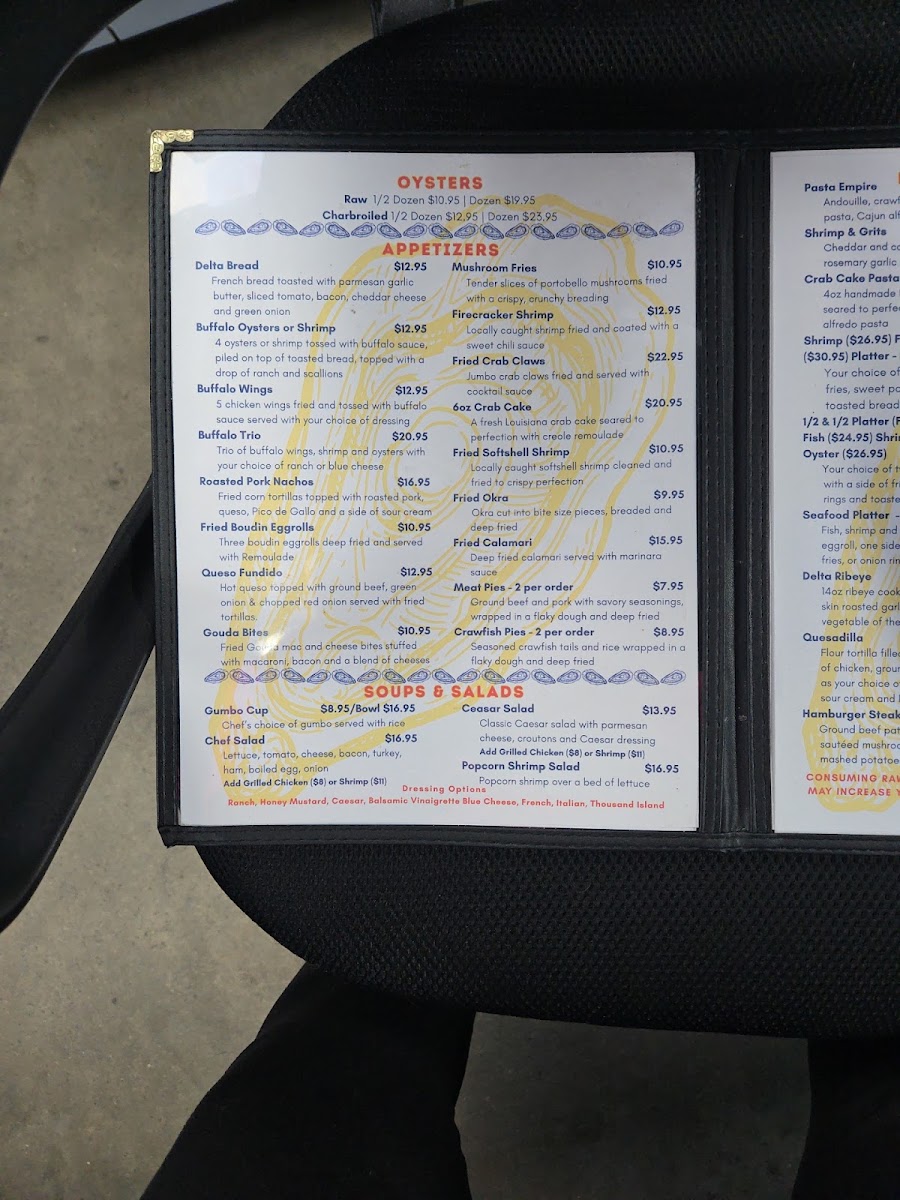 OYSTERS
Raw 1/2 Dozen $10.95 | Dozen $19.95
Charbroiled 1/2 Dozen $12.95 | Dozen $23.95
APPETIZERS
Delta Bread $12.95
French bread toasted with parmesan garlic
butter, sliced tomato, bacon, cheddar cheese
and green onion
Buffalo Oysters or Shrimp $12.95
4 oysters or shrimp tossed with buffalo sauce,
piled on top of toasted bread, topped with a
drop of ranch and scallions
Buffalo Wings $12.95
5 chicken wings fried and tossed with buffalo
sauce served with your choice of dressing
Buffalo Trio $20.95
Trio of buffalo wings, shrimp and oysters with
your choice of ranch or blue cheese
Roasted Pork Nachos $16.95
Fried corn tortillas topped with roasted pork,
queso, Pico de Gallo and a side of sour cream
Fried Boudin Eggrolls $10.95
Three boudin eggrolls deep fried and served
with Remoulade
Queso Fundido $12.95
Hot queso topped with ground beef, green
onion & chopped red onion served with fried
tortillas.
Gouda Bites $10.95
Fried Gouda mac and cheese bites stuffed
with macaroni, bacon and a blend of cheeses
Mushroom Fries $10.95
Tender slices of portobello mushrooms fried
with a crispy, crunchy breading
Firecracker Shrimp $12.95
Locally caught shrimp fried and coated with a
sweet chili sauce
Fried Crab Claws $22.95
Jumbo crab claws fried and served with
cocktail sauce
6oz Crab Cake $20.95
A fresh Louisiana crab cake seared to
perfection with creole remoulade
Fried Softshell Shrimp $10.95
Locally caught softshell shrimp cleaned and
fried to crispy perfection
Fried Okra $9.95
Okra cut into bite size pieces, breaded and
deep fried
Fried Calamari $15.95
Deep fried calamari served with marinara
sauce
Meat Pies - 2 per order $7.95
Ground beef and pork with savory seasonings,
wrapped in a flaky dough and deep fried
Crawfish Pies - 2 per order $8.95
Seasoned crawfish tails and rice wrapped in a
flaky dough and deep fried
SOUPS & SALADS
Gumbo Cup $8.95/Bowl $16.95
Chef's choice of gumbo served with rice
Chef Salad $16.95
Lettuce, tomato, cheese, bacon, turkey,
ham, boiled egg, onion
Add Grilled Chicken ($8) or Shrimp ($11)
Ceasar Salad $13.95
Classic Caesar salad with parmesan
cheese, croutons and Caesar dressing
Add Grilled Chicken ($8) or Shrimp ($11)
Popcorn Shrimp Salad $16.95
Popcorn shrimp over a bed of lettuce
Dressing Options
Ranch, Honey Mustard, Caesar, Balsamic Vinaigrette Blue Cheese, French, Italian, Thousand Island
Pasta Empire
Andouille,
pasta, Cajun
Shrimp & Grits
Cheddar and
rosemary garlic
Crab Cake Pasta
4oz handmade
seared to
alfredo pasta
Shrimp ($26.95)
($30.95) Platter -
Your choice of
fries, sweet
toasted bread
1/2 & 1/2 Platter
Fish ($24.95)
Oyster ($26.95)
Your choice of
with a side of
rings and
Seafood Platter -
Fish, shrimp and
eggroll, one side
fries, onion
Delta Ribeye
14oz ribeye
skin roasted
vegetable of the
Quesadilla
Flour tortilla
of chicken,
as your choice
sour cream and
Hamburger Steak
Ground beef
sautéed
mashed
CONSUMING RAW
MAY INCREASE